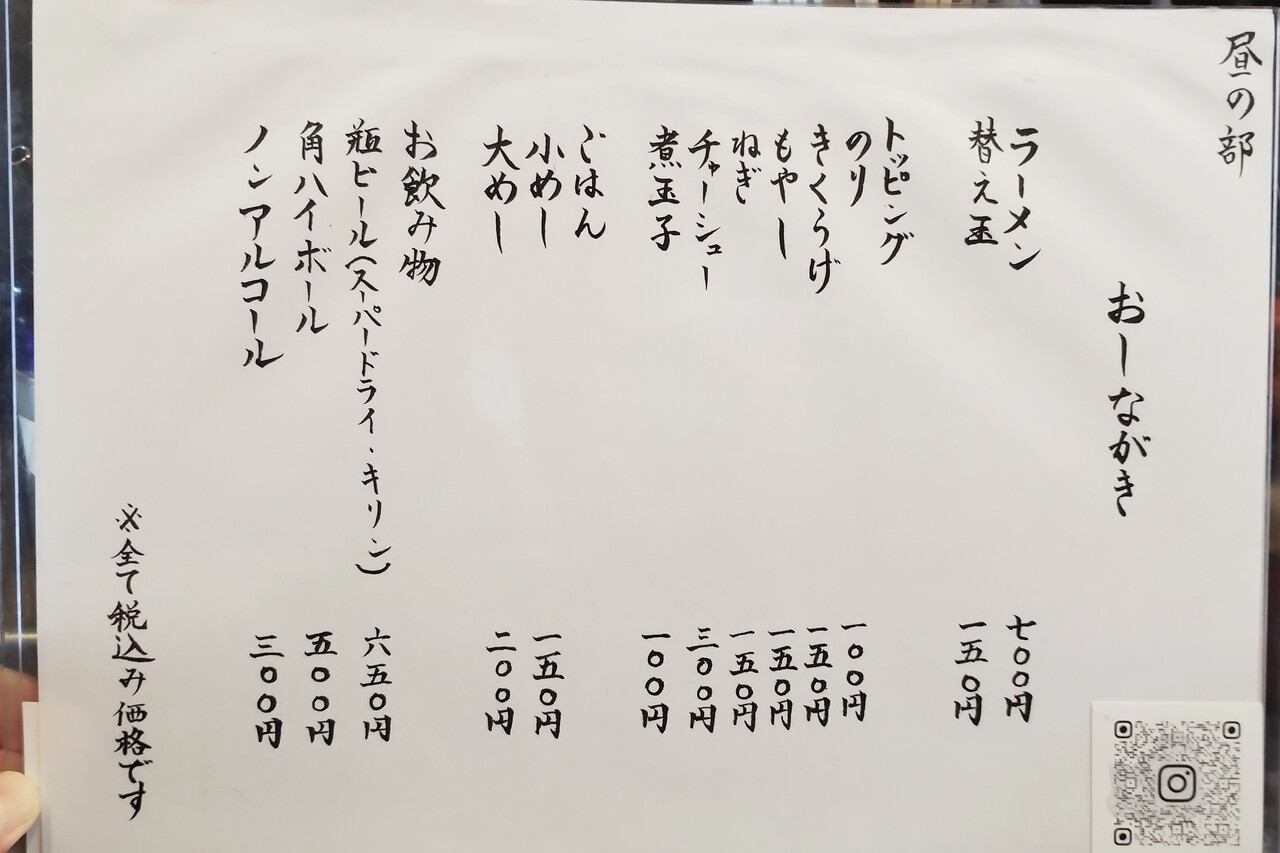 昼の部
おしながき
ラーメン 七〇〇円
替え玉 一五〇円
トッピング
のり 一〇〇円
きくらげ 一五〇円
もやし 一五〇円
ねぎ 一五〇円
チャーシュー 三〇〇円
煮玉子 一〇〇円
ごはん
小めし 一五〇円
大めし 二〇〇円
お飲み物
瓶ビール(スーパードライ・キリン) 六五〇円
角ハイボール 五〇〇円
ノンアルコール 三〇〇円
※全て税込み価格です